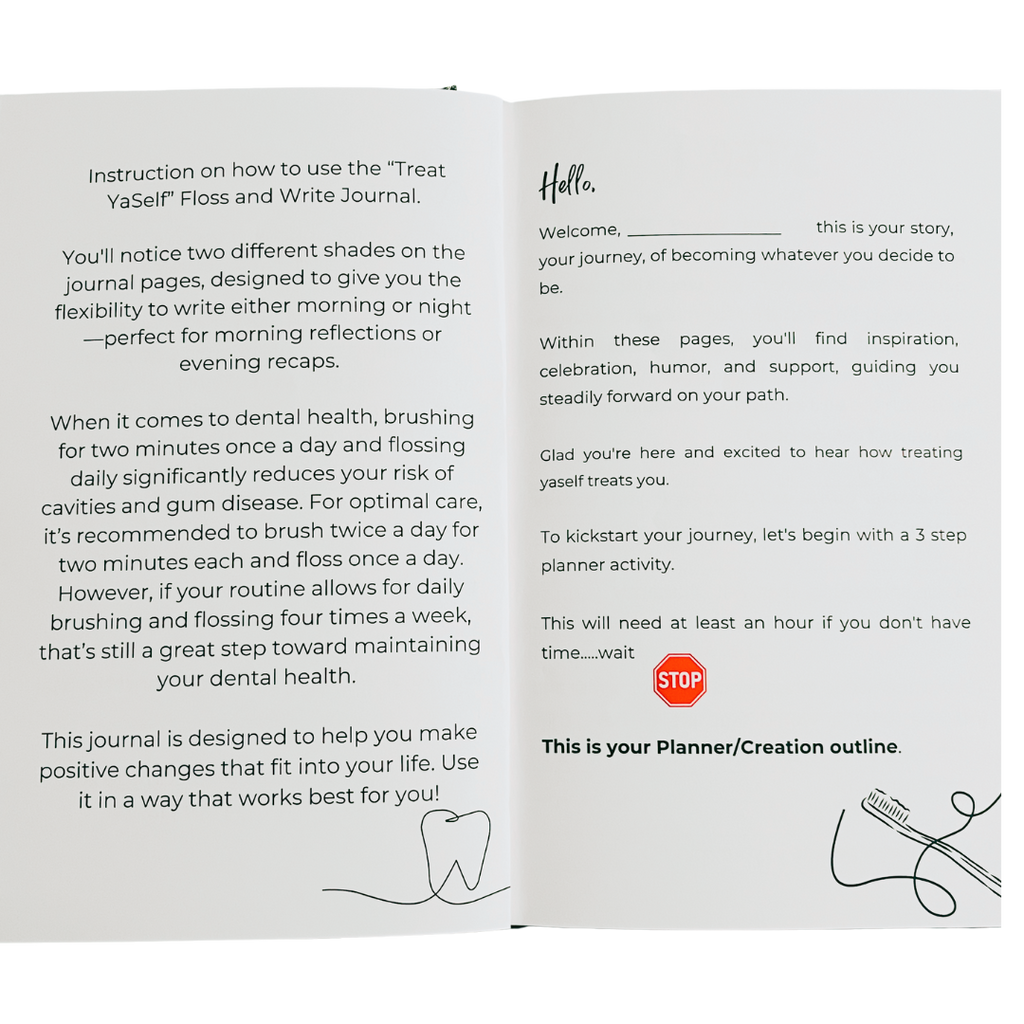 Instruction on how to use the “Treat
YaSelf” Floss and Write Journal.
You'll notice two different shades on the
journal pages, designed to give you the
flexibility to write either morning or night
—perfect for morning reflections or
evening recaps.
When it comes to dental health, brushing
for two minutes once a day and flossing
daily significantly reduces your risk of
cavities and gum disease. For optimal care,
it’s recommended to brush twice a day for
two minutes each and floss once a day.
However, if your routine allows for daily
brushing and flossing four times a week,
that’s still a great step toward maintaining
your dental health.
This journal is designed to help you make
positive changes that fit into your life. Use
it in a way that works best for you!
Hello,
Welcome, ____________________ this is your story,
your journey, of becoming whatever you decide to
be.
Within these pages, you'll find inspiration,
celebration, humor, and support, guiding you
steadily forward on your path.
Glad you're here and excited to hear how treating
yaself treats you.
To kickstart your journey, let's begin with a 3 step
planner activity.
This will need at least an hour if you don't have
time.....wait
STOP
This is your Planner/Creation outline.